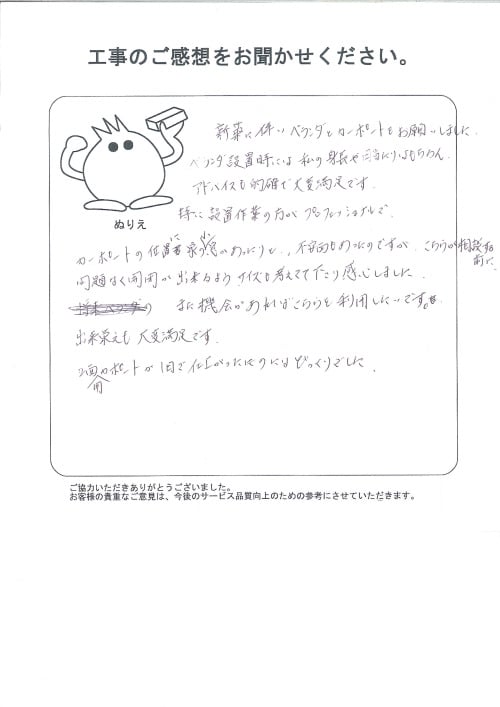 工事のご感想をお聞かせください。
新築に伴いベランダとカーポートをお願いしました。
ベランダ設置時には私の身長や はもちろん、
アドバイスも的確で大変満足です。
特に設置作業の方がプロフェッショナルで、
ぬりえ
カーポートの位置 があったりと、不安もあったのですが、こちらが相談する前に、
問題なく開閉が出来るようサイズも考えて下さり感心しました。
また機会があればこちらを利用したいです。
出来栄えも大変満足です。
2台用カーポートが1日で仕上がったのにはびっくりでした。
ご協力いただきありがとうございました。
お客様の貴重なご意見は、今後のサービス品質向上のための参考にさせていただきます。